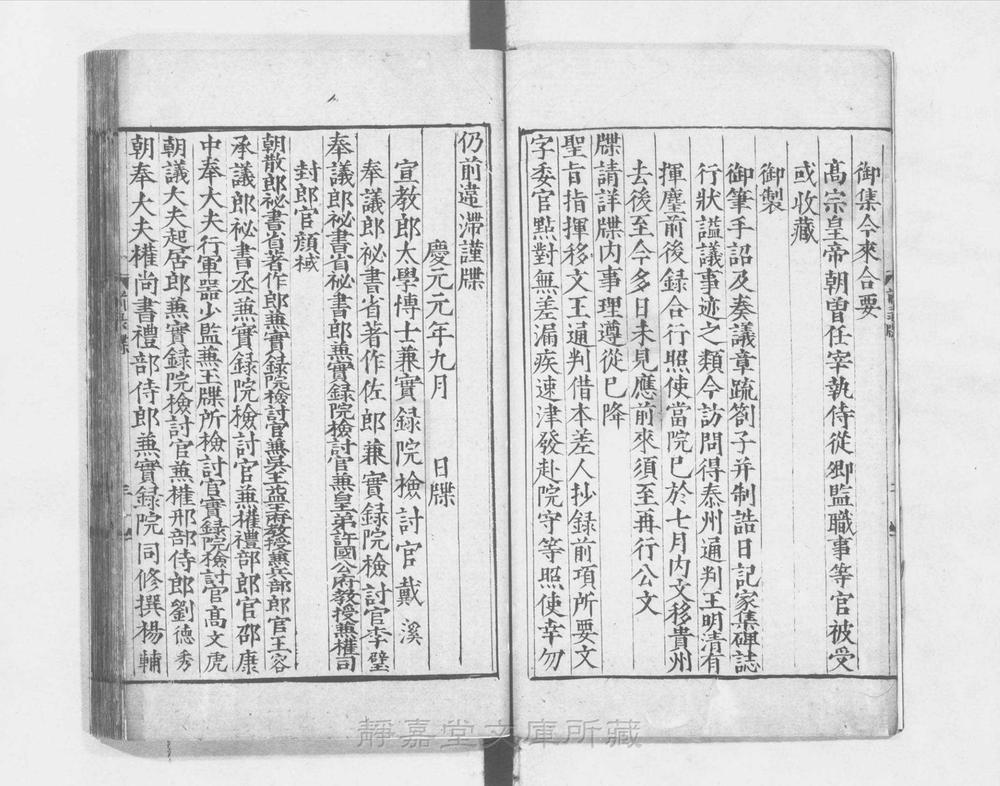 御集今來合要
髙宗皇帝朝曾任宰執侍從卿監職事等官被受
或收藏
御製
御筆手詔及奏議章疏劄子并制誥日記家集碑誌
行狀謚議事迹之類今訪問得泰州通判王明清有
揮麈前後録合行照使當院已於七月内文移貴州
去後至今多日未見應前來須至再行公文
牒請詳牒内事理遵從已降
聖旨指揮移文王通判借本差人抄録前項所要文
字委官點對無差漏疾速津發赴院守等照使幸勿
仍前違滯謹牒
慶元元年九月　日牒
宣教郎太學博士兼實録院檢討官戴溪
奉議郎祕書省著作佐郎兼實録院檢討官李壁
奉議郎祕書省祕書郎兼實録院檢討官兼皇弟許國公府教授兼權司
封郎官顔棫
朝散郎祕書省著作郎兼實録院檢討官兼吳王益王府教授兼兵部郎官王容
承議郎祕書丞兼實録院檢討官兼權禮部郎官邵康
中奉大夫行軍器少監兼玉牒所檢討官實録院檢討官髙文虎
朝議大夫起居郎兼實録院檢討官兼權刑部侍郎劉德秀
朝奉大夫權尚書禮部侍郎兼實録院同修撰楊輔
靜嘉堂文庫所藏